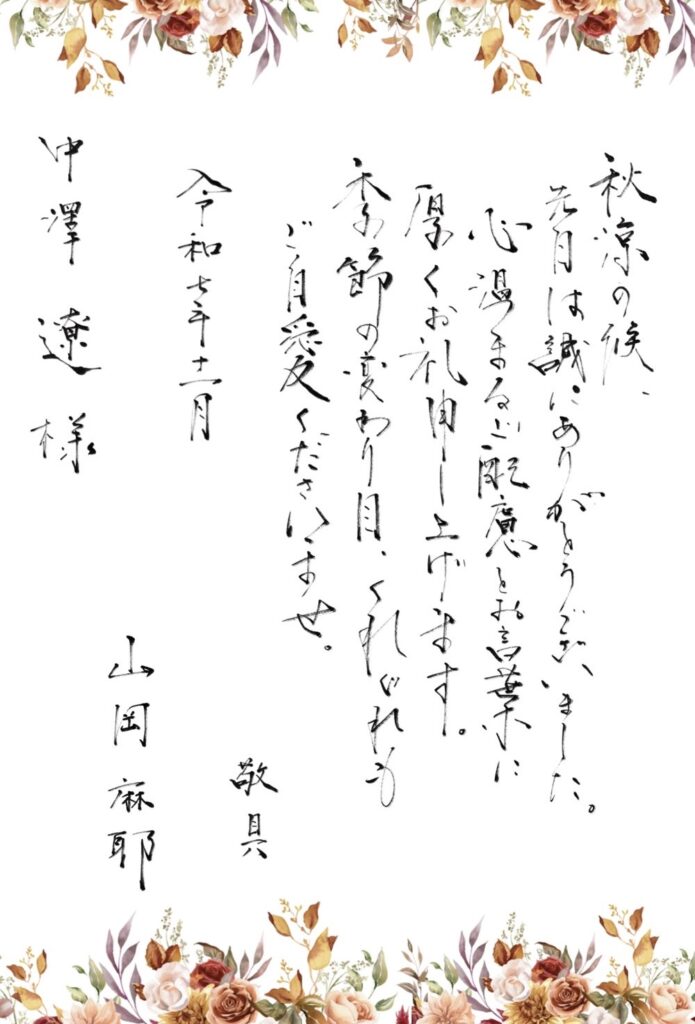 秋涼の候、
先月は誠にありがとうございました。
心温まるご配慮とお言葉に
厚くお礼申し上げます。
季節の変わり目、くれぐれも
ご自愛くださいませ。
敬具
令和七年十一月
山岡麻耶
中澤遼様